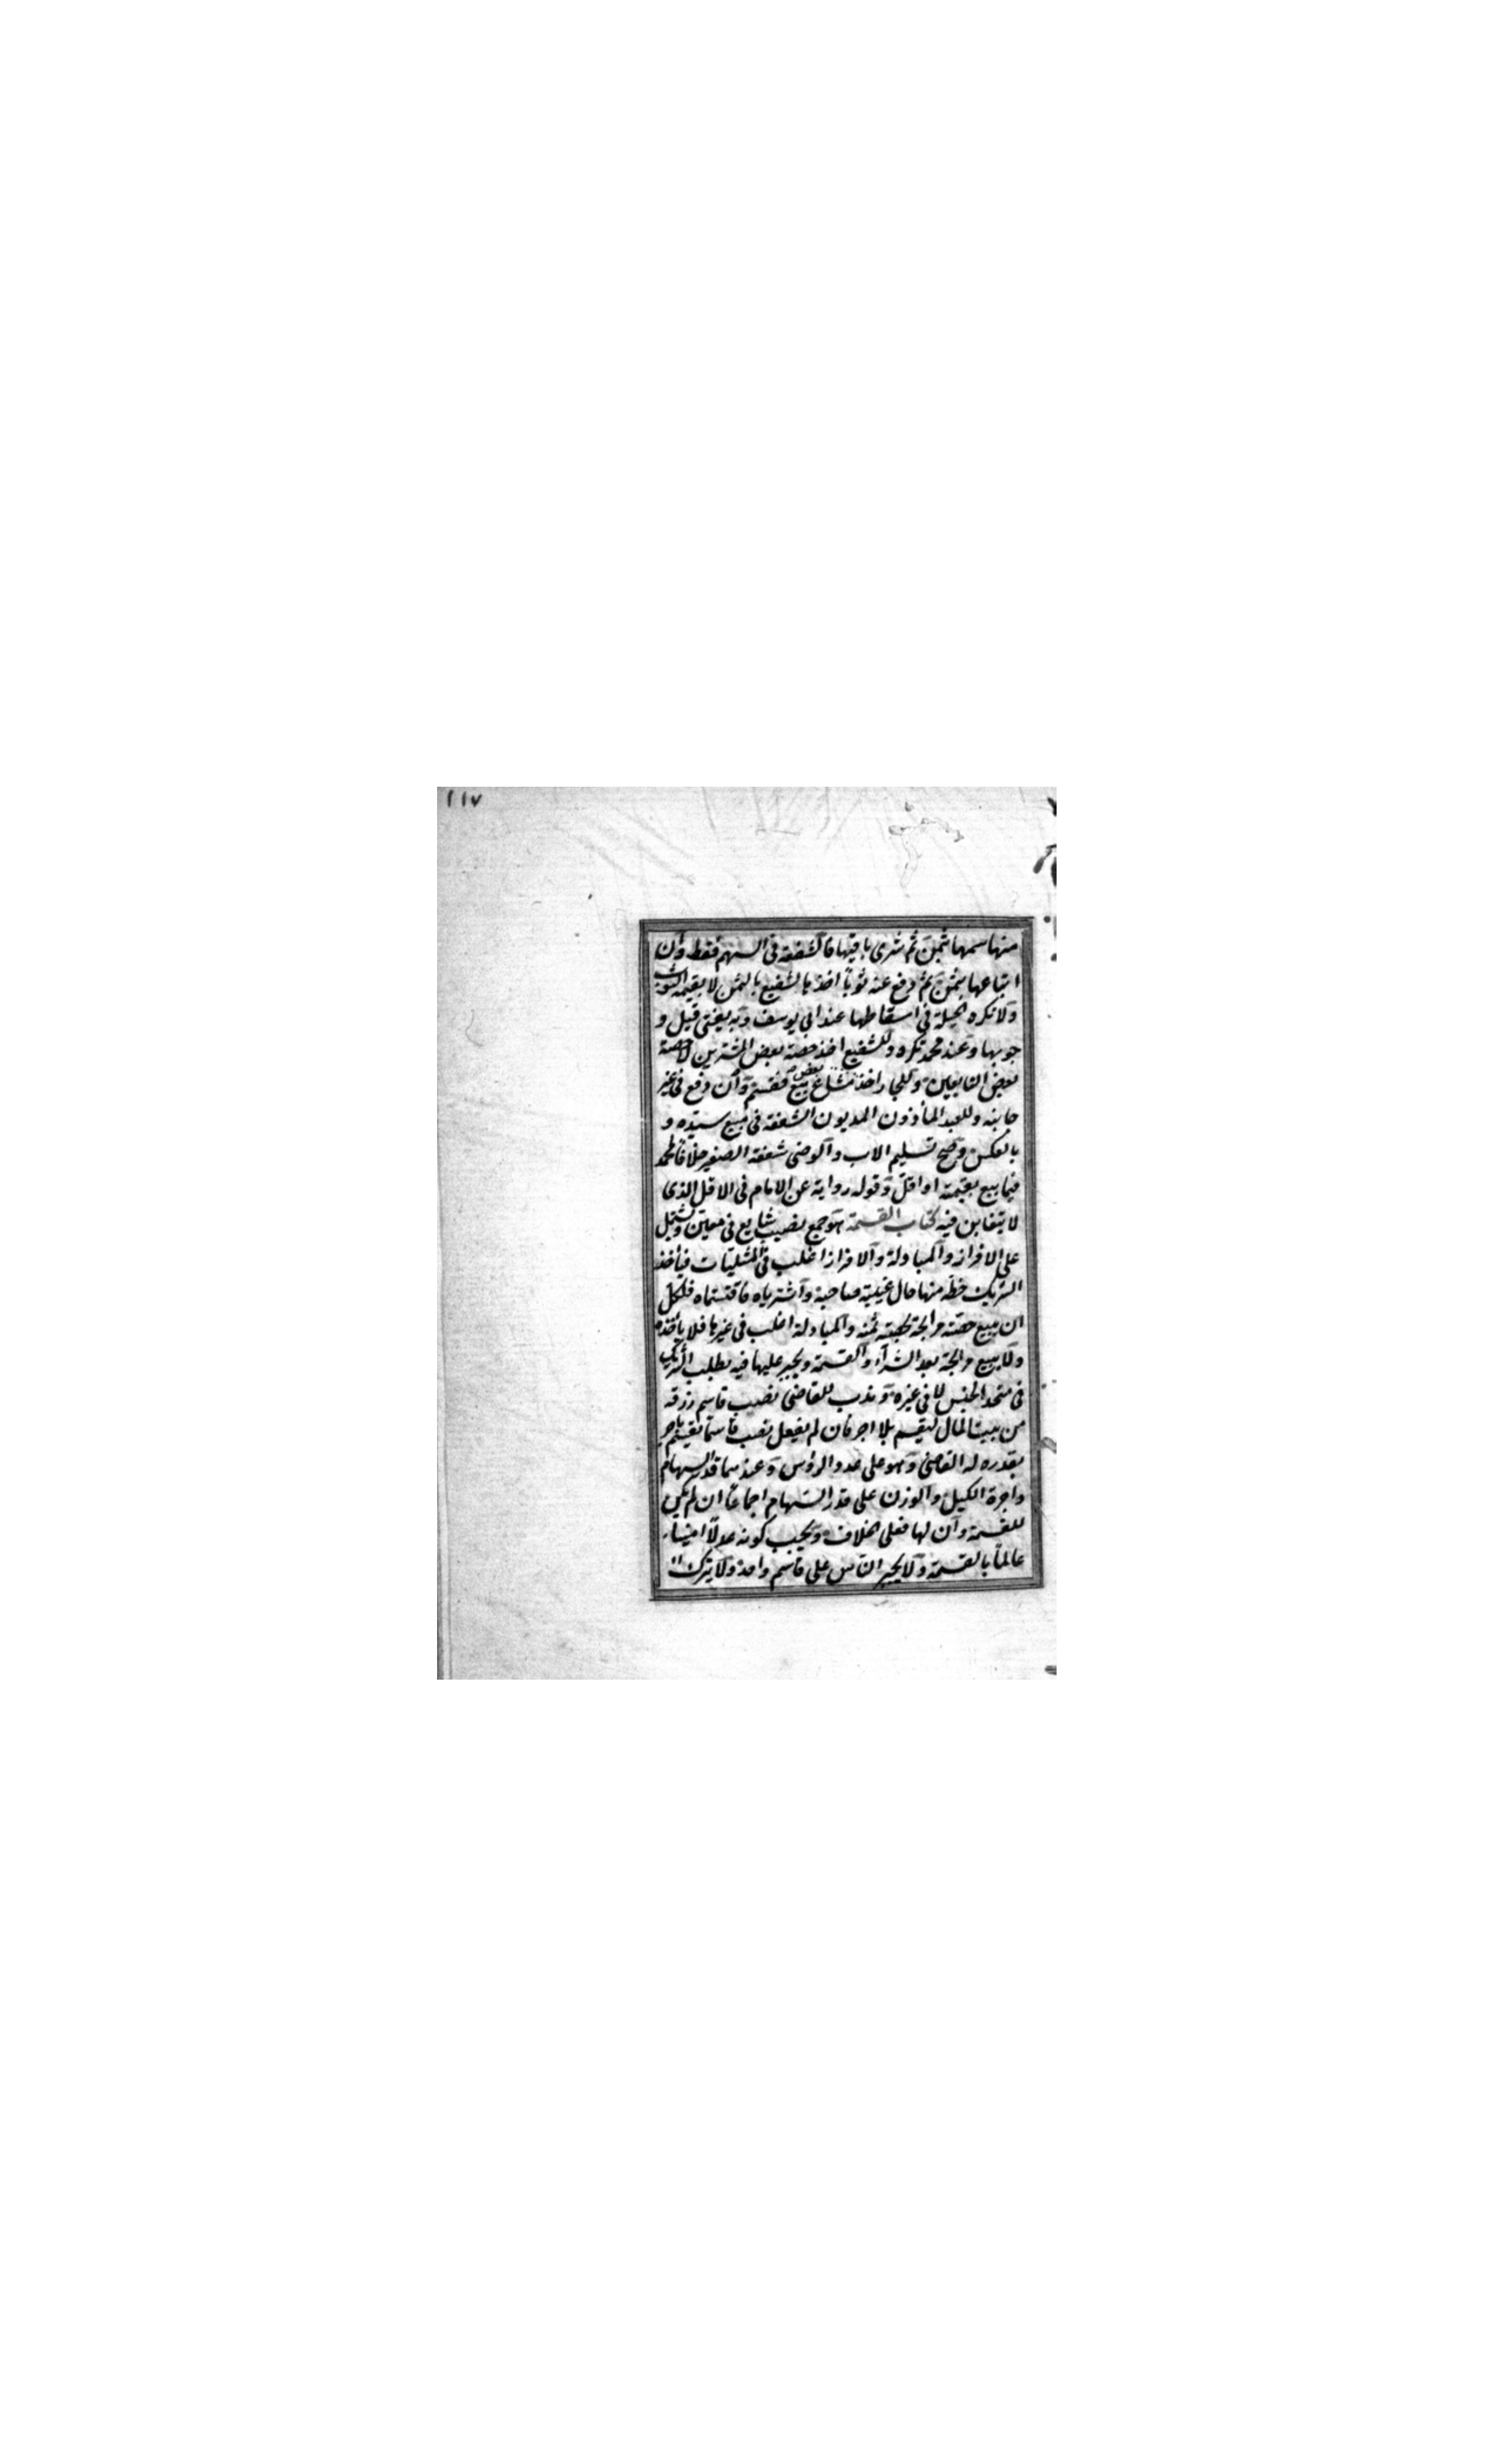 ١١٧
منها سهما بثمن ثم شرى باقيها فالشفعة فى السهم فقط وان
ابتاعها بثمن ثم دفع عنه ثوبا اخذها الشفيع بالثمن لا بقيمة الثوب
ولا تكره الحيلة فى اسقاطها عند ابى يوسف وبه يفتى قبل و
جوبها وعند محمد تكره وللشفيع اخذ حصة بعض المشترين لا حصة
بعض البايعين وللجار اخذ بعض مشاع بيع فقسم وان وقع فى غير
جانبه وللعبد المأذون المديون الشفعة فى مبيع سيده و
بالعكس وصح تسليم الاب والوصى شفعة الصغير خلافا لمحمد
فيما بيع بقيمته او اقل وقوله رواية عن الامام فى الاقل الذى
لا يتغابن فيه كتاب القسمة هو جمع نصيب شايع فى معين وتشتمل
على الافراز والمبادلة والافراز اغلب فى المثليات فيأخذ
الشريك حظه منها حال غيبة صاحبه وان اشترياه فاقتسماه فلكل
ان يبيع حصته مرابحة بحصته ثمنه والمبادلة اغلب فى غيرها فلا يأخذه
ولا يبيع مرابحة بعد الشرآء والقسمة ويجبر عليها فيه بطلب الشريك
فى متحد الجنس لا فى غيره وندب للقاضى نصب قاسم رزقه
من بيت المال ليقسم بلا اجر فان لم يفعل نصب قاسما يقسم باجر
يقدره له القاضى وهو على عدد الرؤس وعندهما قدر السهام
واجرة الكيل والوزن على قدر السهام اجماعا ان لم يكن
للقسمة وان لها فعلى الخلاف ويجب كونه عدلا امينا
عالما بالقسمة ولا يجبر الناس على قاسم واحد ولا يترك